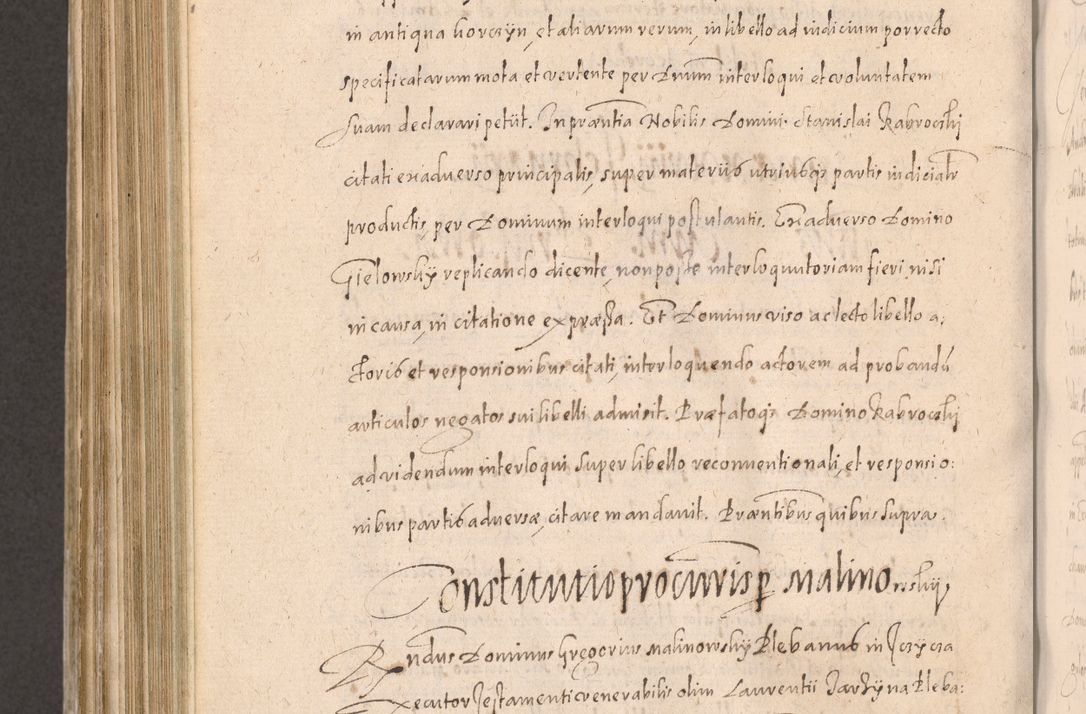 in antiqua Gorczyn, et aliarum rerum, in libello ad iudicium porrecto
specificatarum mota et vertente per Dnum interloqui et voluntatem
suam declarari petiit. In præntia Nobilis Domini Stanislai Kabroczky
citati ex adverso principalis, super materiis utriusqz partis iudicialr
productis, per Dominum interloqui postulantis. Ex adverso Domino
Gielowsky replicando dicente, non posse interloquutoriam fieri, nisi
in causa, in citatione expræssa. Et Dominus viso ac lecto libello a:
ctoris et responsionibus citati, interloquendo actorem ad probandū
articulos negatos sui libelli admisit. Præfatoqz Domino Kabroczky
ad videndum interloqui super libello reconventionali, et responsio:
nibus partis adversæ, citare mandavit. Præntibus quibus supra.
Constitutio procuris per Malinowsky
Rndus Dominus Gregorius Malinowsky Plebanus in
Executor Testamenti venerabilis olim Laurentii Pleba: